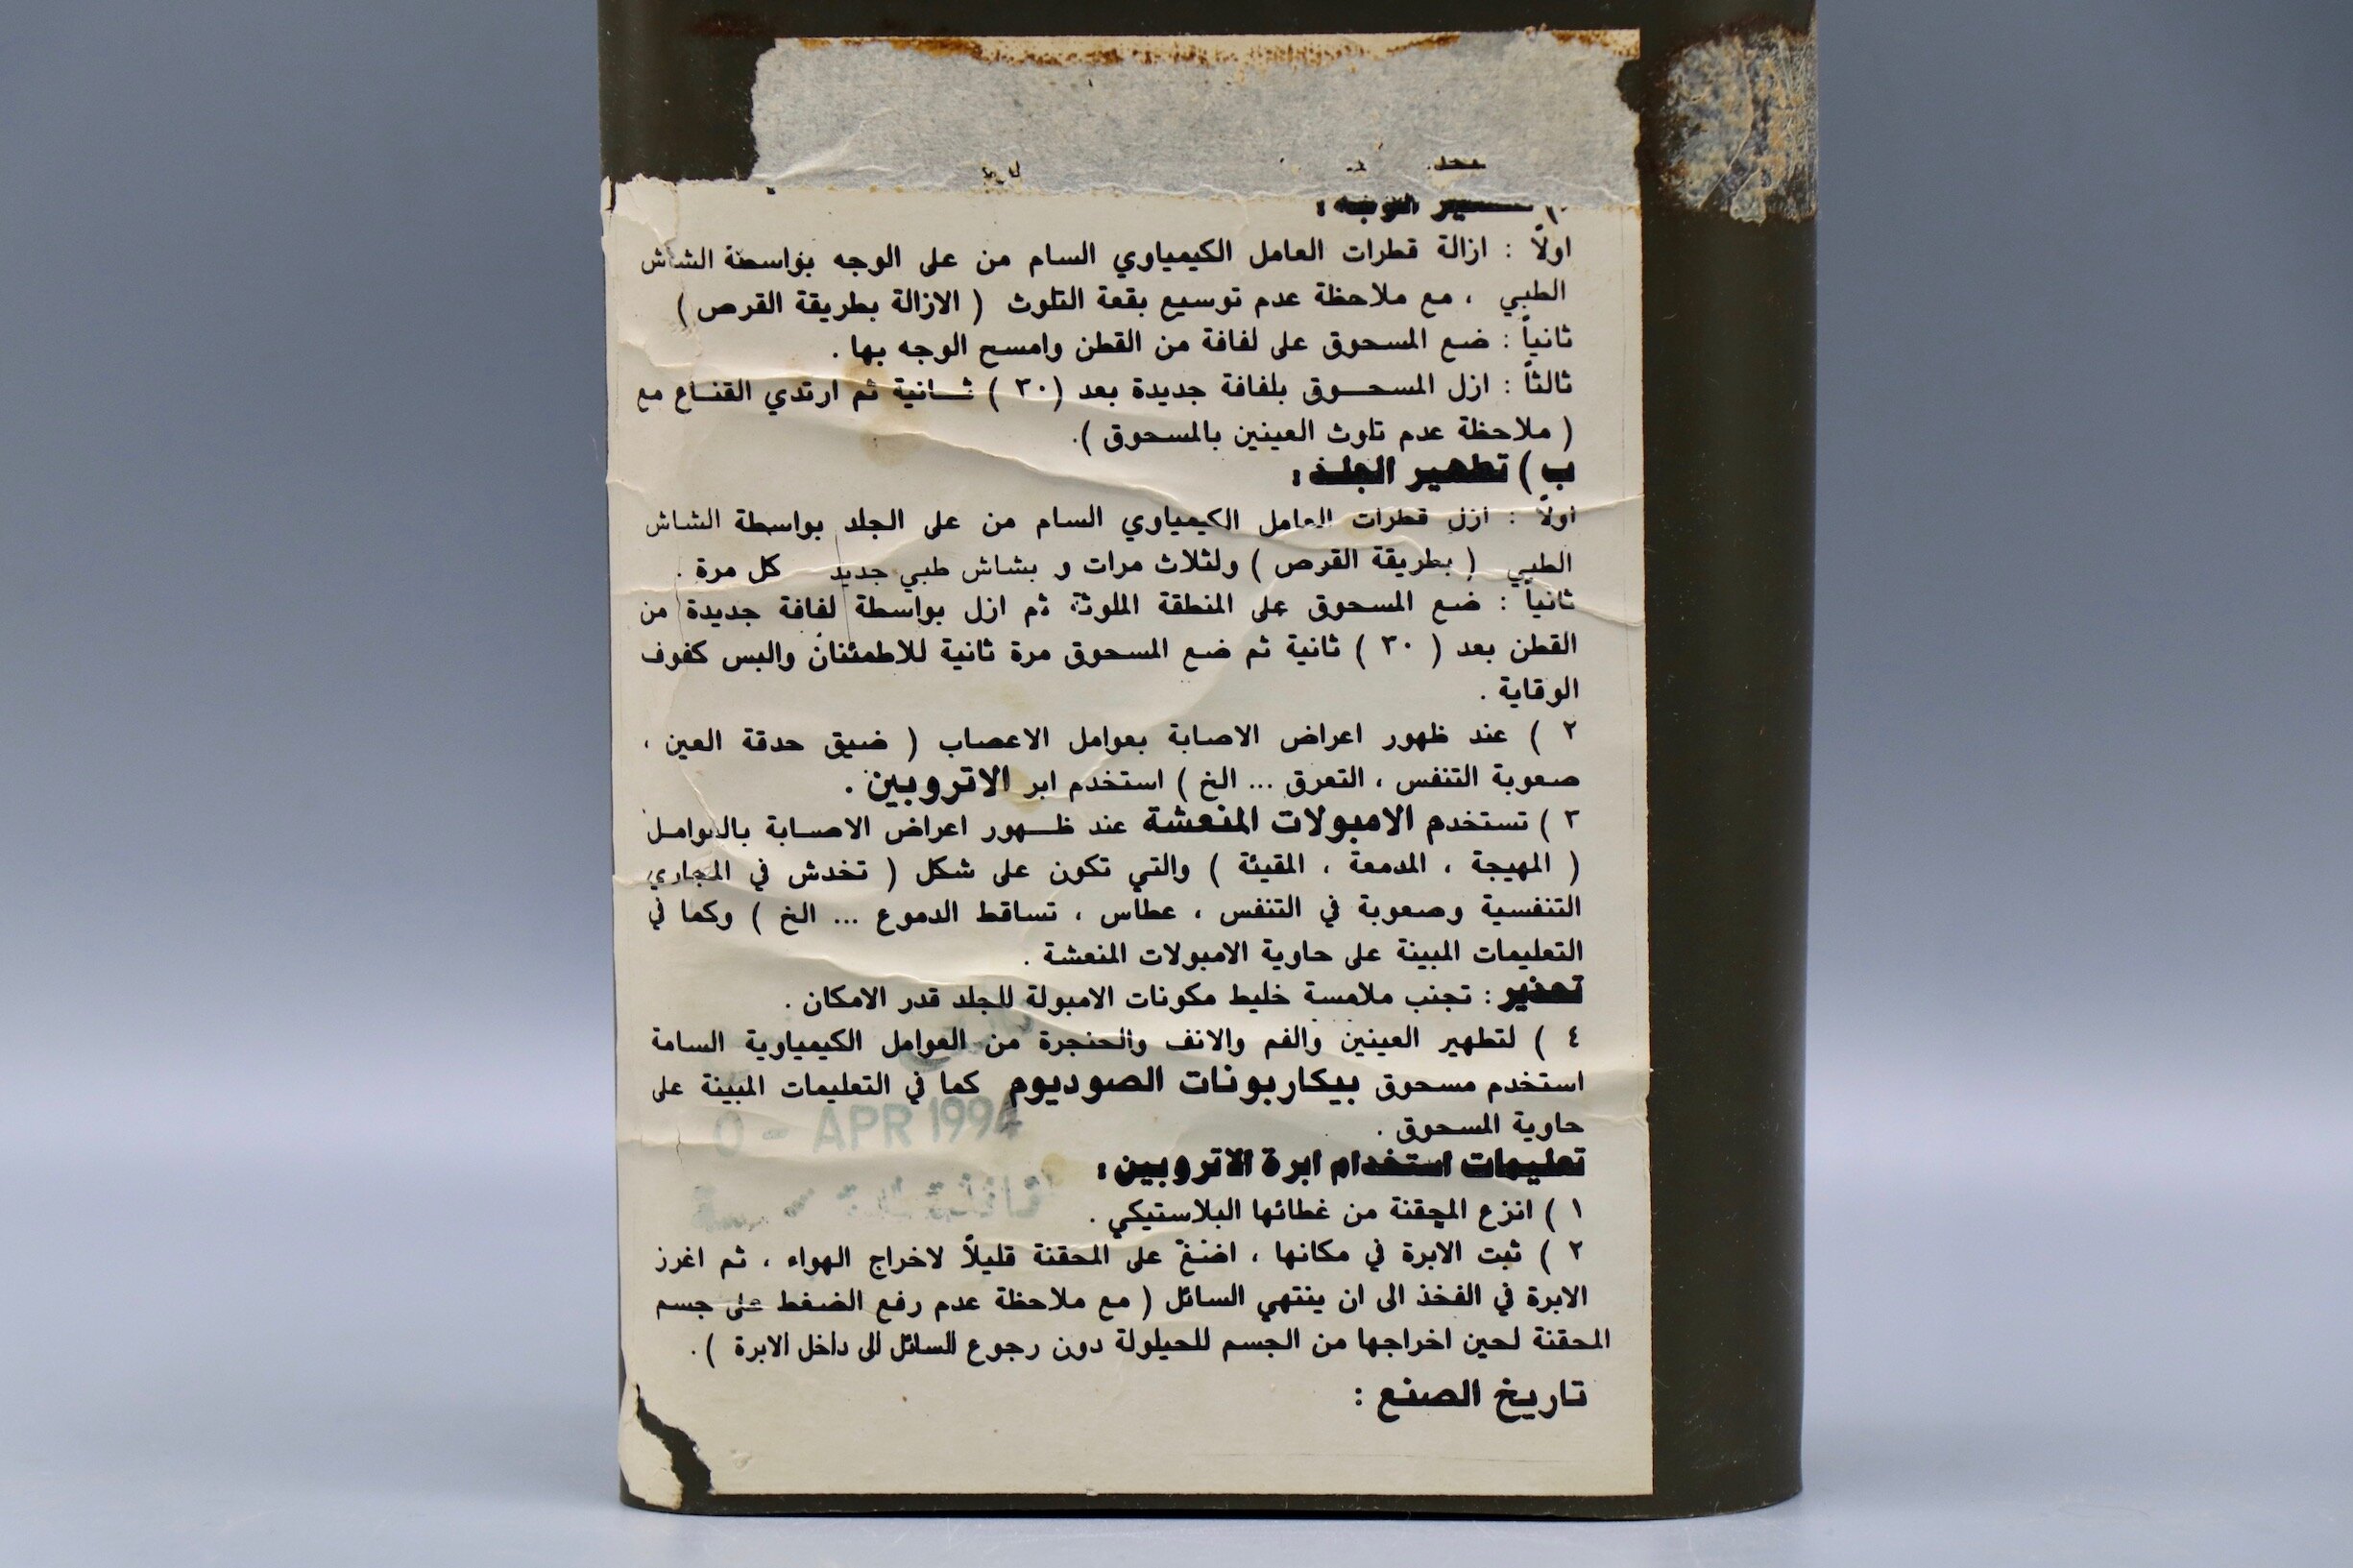 اولاً : ازالة قطرات العامل الكيمياوي السام من على الوجه بواسطة الشاش
الطبي ، مع ملاحظة عدم توسيع بقعة التلوث ( الازالة بطريقة القرص )
ثانياً : ضع المسحوق على لفافة من القطن وامسح الوجه بها .
ثالثاً : ازل المسحوق بلفافة جديدة بعد (٣٠ ) ثانية ثم ارتدي القناع مع
( ملاحظة عدم تلوث العينين بالمسحوق ).
ب ) تطهير الجلد :
اولاً : ازل قطرات العامل الكيمياوي السام من على الجلد بواسطة الشاش
الطبي ( بطريقة القرص ) ولثلاث مرات و بشاش طبي جديد كل مرة .
ثانياً : ضع المسحوق على المنطقة الملوثة ثم ازل بواسطة لفافة جديدة من
القطن بعد ( ٣٠ ) ثانية ثم ضع المسحوق مرة ثانية للاطمئنان والبس كفوف
الوقاية .
٢ ) عند ظهور اعراض الاصابة بعوامل الاعصاب ( ضيق حدقة العين ،
صعوبة التنفس ، التعرق ... الخ ) استخدم ابر الاتروبين .
٣ ) تستخدم الامبولات المنعشة عند ظهور اعراض الاصابة بالعوامل
( المهيجة ، المدمعة ، المقيئة ) والتي تكون على شكل ( تخدش في المجاري
التنفسية وصعوبة في التنفس ، عطاس ، تساقط الدموع ... الخ ) وكما في
التعليمات المبينة على حاوية الامبولات المنعشة .
تحذير : تجنب ملامسة خليط مكونات الامبولة للجلد قدر الامكان .
٤ ) لتطهير العينين والفم والانف والحنجرة من العوامل الكيمياوية السامة
استخدم مسحوق بيكاربونات الصوديوم كما في التعليمات المبينة على
0 - APR 1994
حاوية المسحوق .
تعليمات استخدام ابرة الاتروبين :
١ ) انزع المحقنة من غطائها البلاستيكي .
٢ ) ثبت الابرة في مكانها ، على المحقنة قليلاً لاخراج الهواء ، ثم اغرز
الابرة في الفخذ الى ان ينتهي السائل ( مع ملاحظة عدم رفع الضغط على جسم
المحقنة لحين اخراجها من الجسم للحيلولة دون رجوع السائل الى داخل الابرة ) .
تاريخ الصنع :